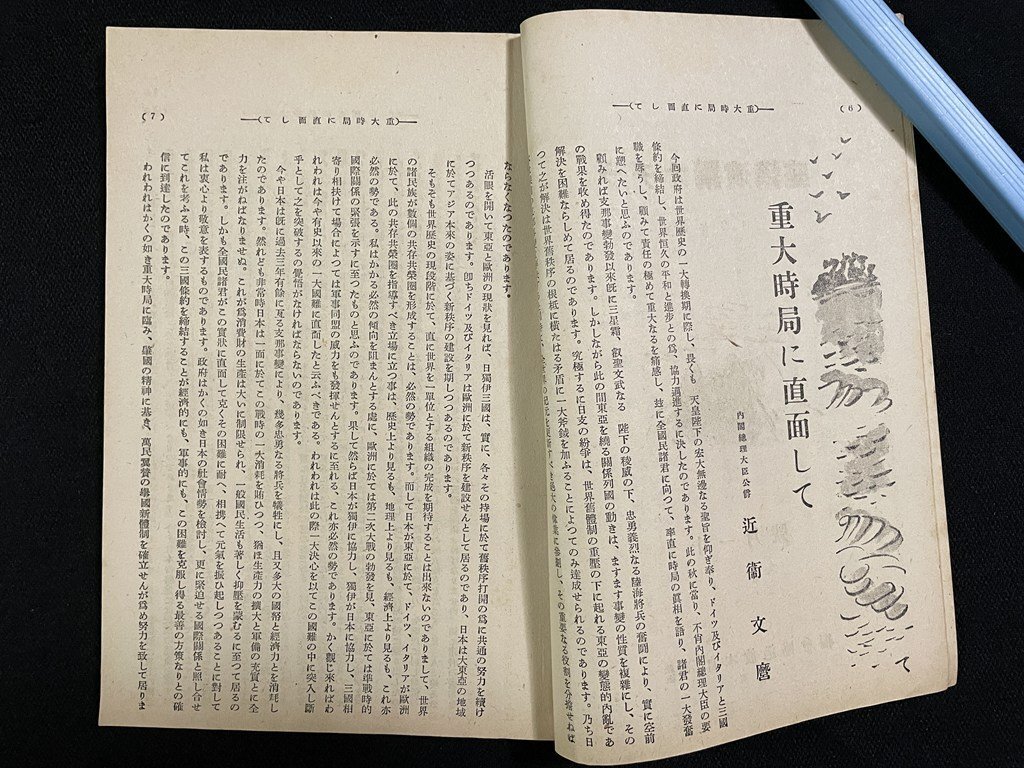 (6)
―(重大時局に直面して)―
重大時局に直面して
內閣總理大臣公爵
近衞文麿
今囘政府は世界歷史の一大轉換期に際し、畏くも 天皇陛下の宏大無邊なる聖旨を仰ぎ奉り、ドイツ及びイタリアと三國
條約を締結し、世界恒久の平和と進步との爲、協力邁進するに決したのであります。此の秋に當り、不肖內閣總理大臣の要
職を辱うし、顧みて責任の極めて重大なるを痛感し、玆に全國民諸君に向つて、率直に時局の眞相を語り、諸君の一大發奮
に愬へたいと思ふのであります。
顧みれば支那事變勃發以來旣に三星霜、叡聖文武なる 陛下の稜威の下、忠勇義烈なる陸海將兵の奮鬪により、實に空前
の戰果を收め得たのであります。しかしながら此の間東亞を繞る關係列國の動きは、ますます事變の性質を複雜にし、その
解決を困難ならしめて居るのであります。究極するに日支の紛爭は、世界舊體制の重壓の下に起れる東亞の變態的內亂であ
つて之が解決は世界舊秩序の根柢に橫たはる矛盾に一大斧鉞を加ふることによつてのみ達成せられるのであります。乃ち日
(7)
―(重大時局に直面して)―
ならなくなつたのであります。
活眼を開いて東亞と歐洲の現狀を見れば、日獨伊三國は、實に、各々その持場に於て舊秩序打開の爲に共通の努力を續け
つつあるのであります。卽ちドイツ及びイタリアは歐洲に於て新秩序を建設せんとして居るのであり、日本は大東亞の地域
に於てアジア本來の姿に基づく新秩序の建設を期しつつあるのであります。
そもそも世界歷史の現段階に於て、直に世界を一單位とする組織の完成を期待することは出來ないのでありまして、世界
の諸民族が數個の共存共榮圈を形成することは、必然の勢であります。而して日本が東亞に於て、ドイツ、イタリアが歐洲
に於て、此の共存共榮圈を指導すべき立場に立つ事は、歷史上より見るも、地理上より見るも、經濟上より見るも、これ亦
必然の勢である。私はかかる必然の傾向を阻まんとする處に、歐洲に於ては第二次大戰の勃發を見、東亞に於ては準戰時的
國際關係の緊張を示すに至つたものと思ふのであります。果して然らば日本が獨伊に協力し、獨伊が日本に協力し、三國相
寄り相扶けて場合によつては軍事同盟の威力をも發揮せんとするに至れる、これ亦必然の勢であります。かく觀じ來ればわ
れわれは今や有史以來の一大國難に直面したと云ふべきである。われわれは此の際一大決心を以てこの國難の中に突入し斷
乎として之を突破するの覺悟がなければならないのであります。
今や日本は旣に過去三年有餘に亙る支那事變により、幾多忠勇なる將兵を犧牲にし、且又多大の國帑と經濟力とを消耗し
たのであります。然れども非常時日本は一面に於てこの戰時の一大消耗を賄ひつつ、猶ほ生產力の擴大と軍備の充實とに全
力を注がねばなりませぬ。これが爲消費財の生產は大いに制限せられ、一般國民生活も著しく抑壓を蒙むるに至つて居るの
であります。しかも全國民諸君がこの實狀に直面して克くその困難に耐へ、相携へて元氣を振ひ起しつつあることに對して
私は衷心より敬意を表するものであります。政府はかくの如き日本の社會情勢を檢討し、更に緊迫せる國際關係と照し合せ
てこれを考ふる時、この三國條約を締結することが經濟的にも、軍事的にも、この困難を克服し得る最善の方策なりとの確
信に到達したのであります。
われわれはかくの如き重大時局に臨み、肇國の精神に基き、萬民翼贊の擧國新體制を確立せんが爲め努力を致して居りま